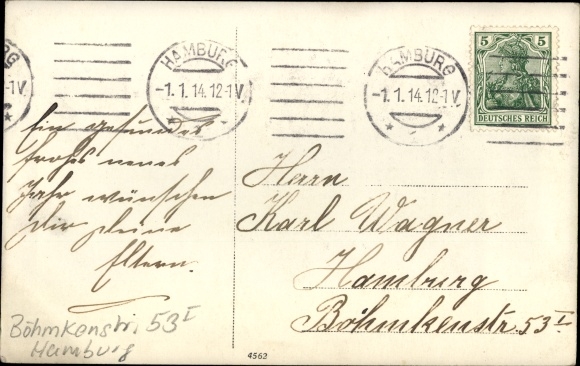 HAMBURG
-1.1.14.12-1V.
HAMBURG
-1.1.14.12-1V.
5 5
DEUTSCHES REICH
Ein gesundes
frohes neues
Jahr wünschen
dir deine
Eltern.
Herrn
Karl Wagner
Hamburg
Böhmkenstr. 53 I
Böhmkenstr. 53 I
Hamburg
4562